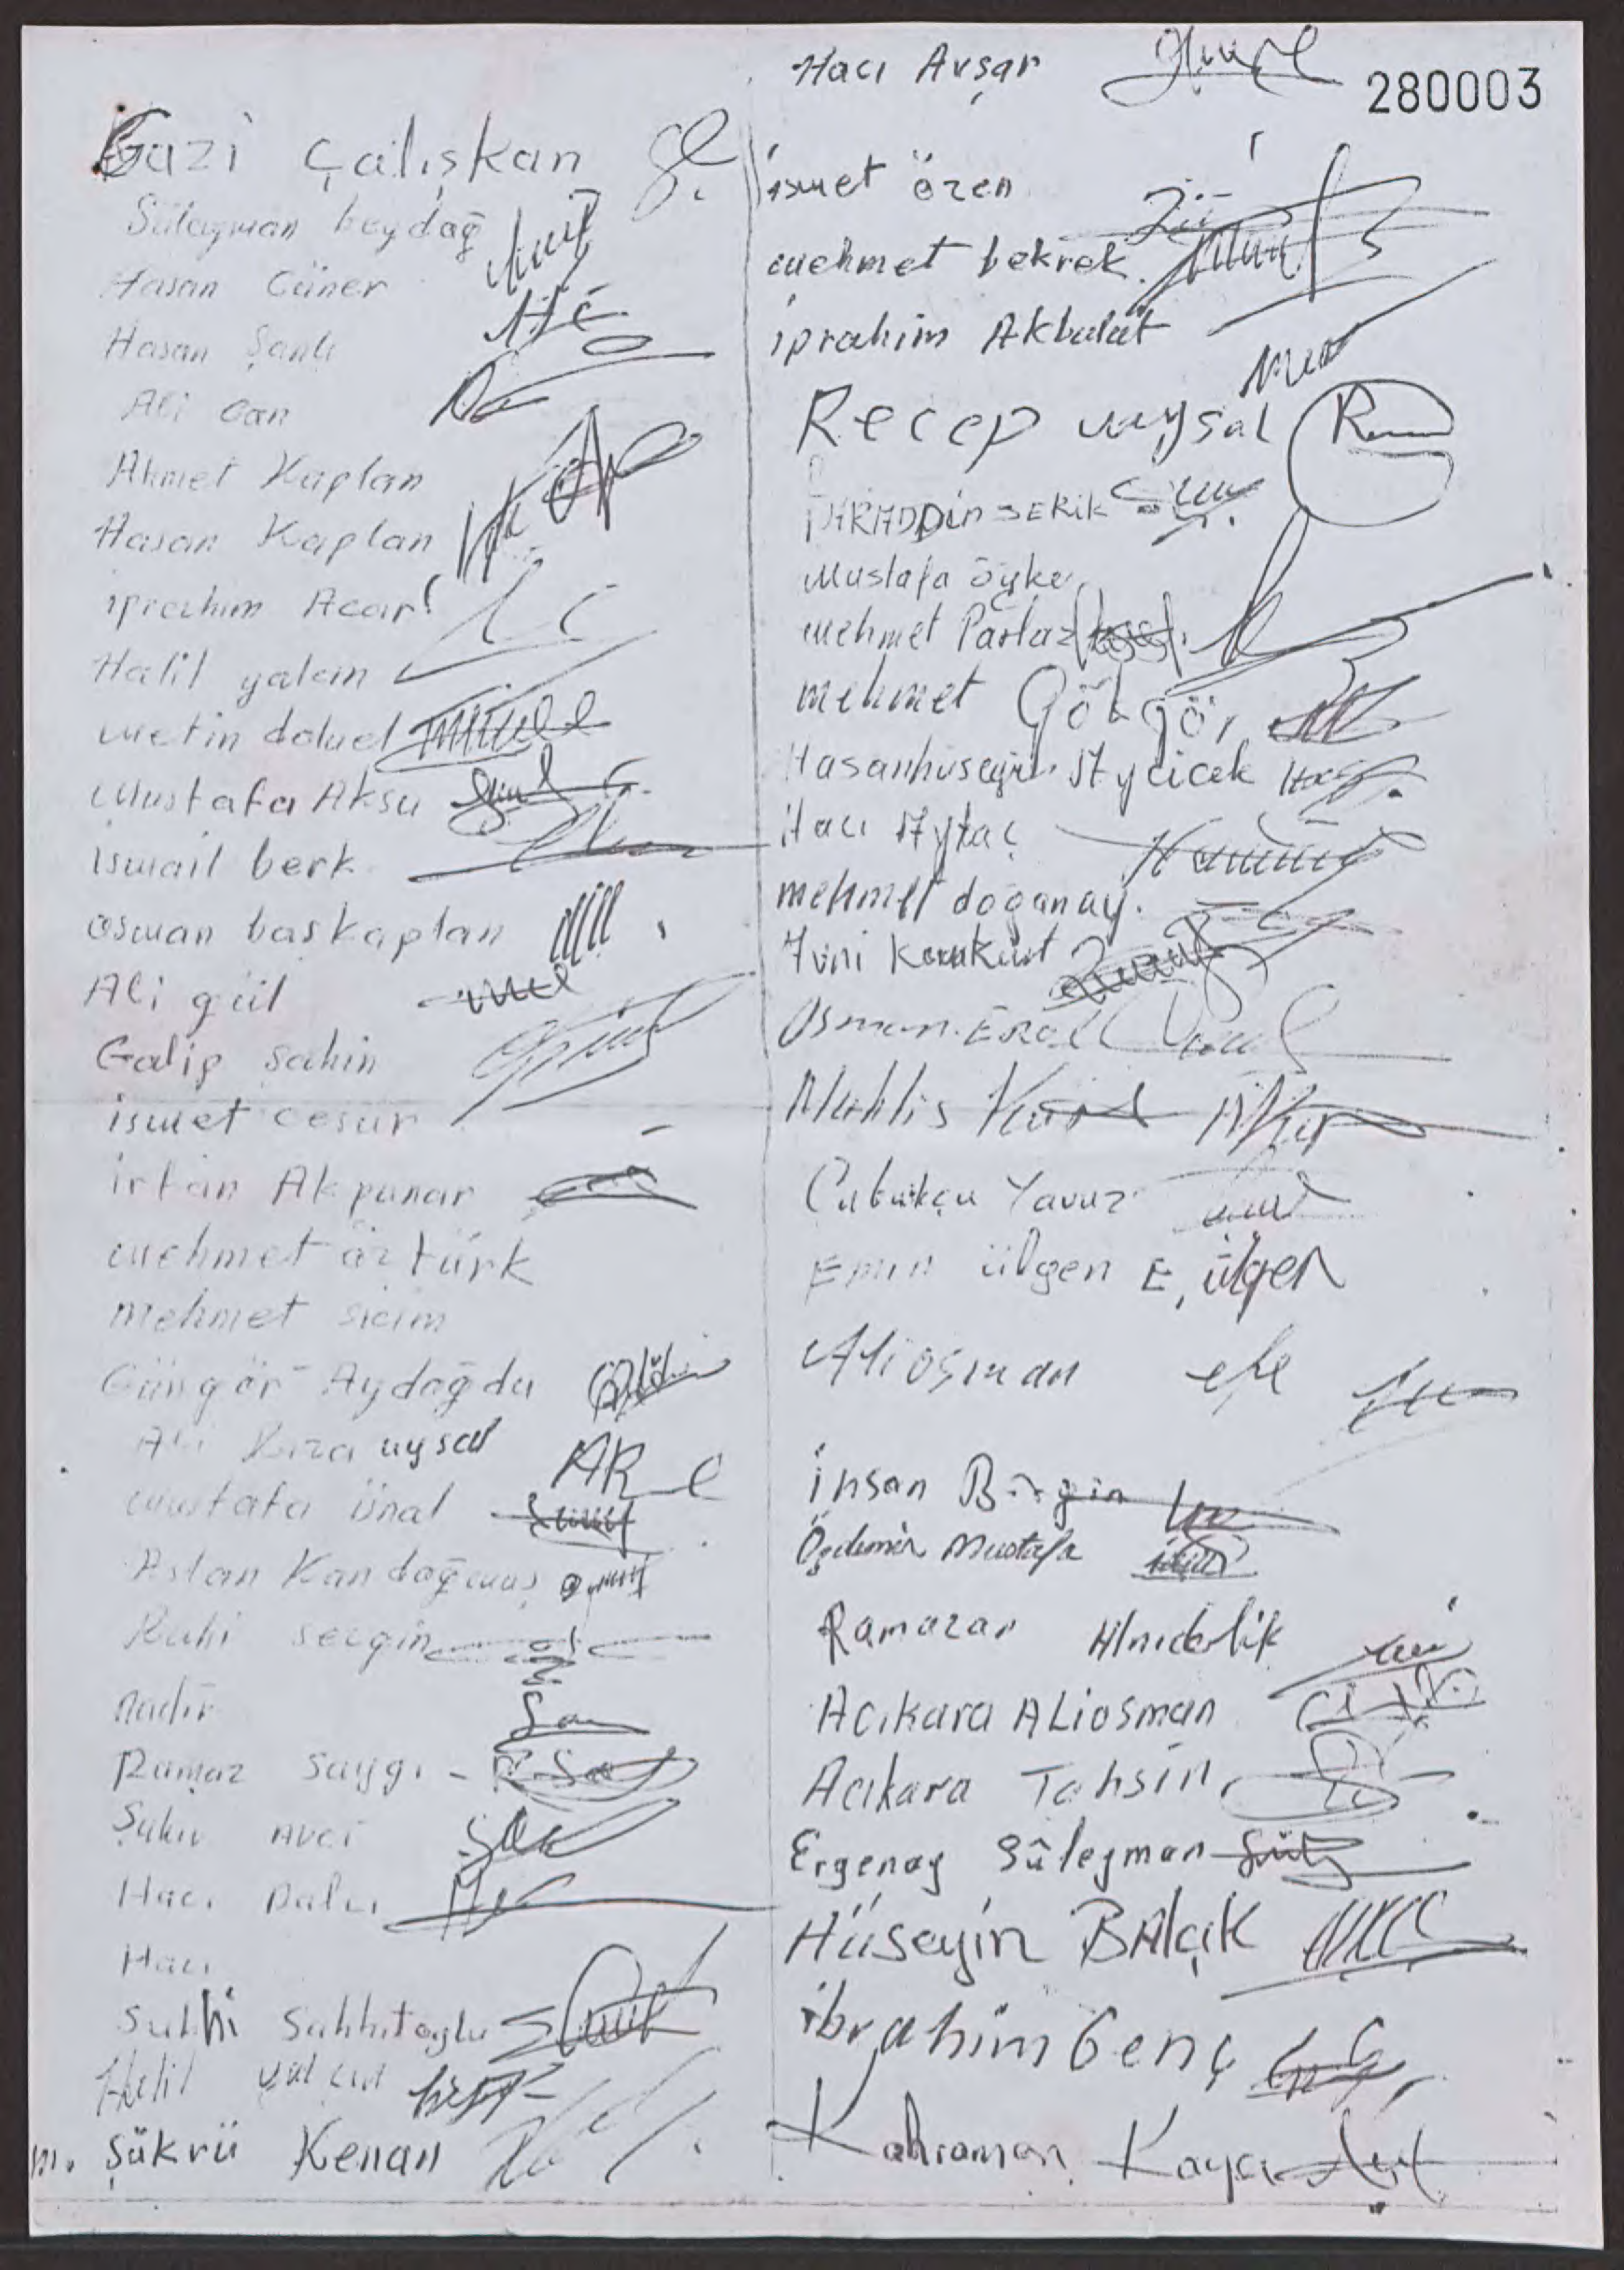 Hacı Avşar
280003
Gazi Çalışkan
Süleyman beydağ
Hasan Cüner
Hasan Şanlı
Ali Can
Ahmet Kaplan
Hasan Kaplan
iprahim Acar
Halil yalcın
metin
Mustafa Aksu
ismail berk
osman başkaplan
Ali gül
Galip şahin
ismet cesur
irfan Akpunar
mehmet öztürk
mehmet sicim
Güngör Aydoğdu
Ali Rıza uysal
mustafa ünal
Aslan Kandoğmuş
Ruhi sezgin
nadir
Ramaz Saygı
Şükrü Avcı
Hacı
Hacı
Suphi
Halil yalçın
m. şükrü Kenan
ismet özen
mehmet bekrek
iprahim Akbulut
Recep uysal
SERİK
Mustafa öyke
mehmet Parlaz
mehmet
Hasanhüseyin Ayçicek
Hacı Aytaç
mehmet doğanay
Osman
Muhlis
Çubukçu Yavuz
Emin ülgen E, ülgen
Aliosman efe
ihsan
Özdemir Mustafa
Ramazan
Acıkara Aliosman
Acıkara Tahsin
Ergenay Süleyman
Hüseyin BAlçık
ibrahim Genç
Kahraman Kaya